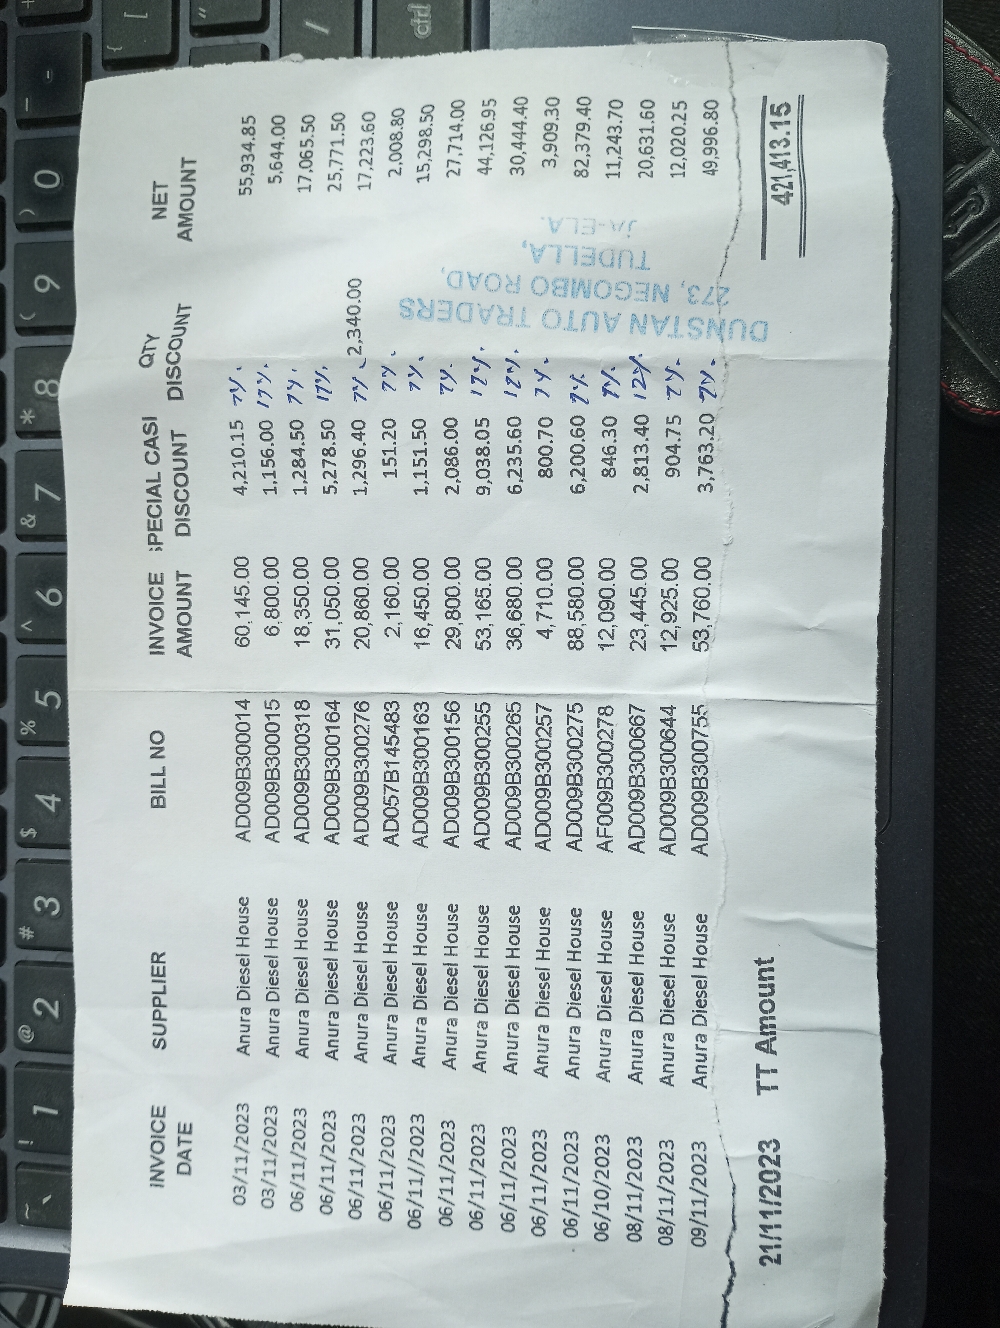 INVOICE DATE SUPPLIER BILL NO INVOICE AMOUNT SPECIAL CASI DISCOUNT QTY DISCOUNT NET AMOUNT
03/11/2023 Anura Diesel House AD009B300014 60,145.00 4,210.15 7%. 55,934.85
03/11/2023 Anura Diesel House AD009B300015 6,800.00 1,156.00 17%. 5,644.00
06/11/2023 Anura Diesel House AD009B300318 18,350.00 1,284.50 7%. 17,065.50
06/11/2023 Anura Diesel House AD009B300164 31,050.00 5,278.50 17%. 25,771.50
06/11/2023 Anura Diesel House AD009B300276 20,860.00 1,296.40 7%. 2,340.00 17,223.60
06/11/2023 Anura Diesel House AD057B145483 2,160.00 151.20 7%. 2,008.80
06/11//2023 Anura Diesel House AD009B300163 16,450.00 1,151.50 7%. 15,298.50
06/11/2023 Anura Diesel House AD009B300156 29,800.00 2,086.00 7%. 27,714.00
06/11/2023 Anura Diesel House AD009B300255 53,165.00 9,038.05 17%. 44,126.95
06/11/2023 Anura Diesel House AD009B300265 36,680.00 6,235.60 17%. 30,444.40
06/11/2023 Anura Diesel House AD009B300257 4,710.00 800.70 7%. 3,909.30
06/11/2023 Anura Diesel House AD009B300275 88,580.00 6,200.60 7%. 82,379.40
06/10/2023 Anura Diesel House AF009B300278 12,090.00 846.30 7%. 11,243.70
08/11/2023 Anura Diesel House AD009B300667 23,445.00 2,813.40 12%. 20,631.60
08/11/2023 Anura Diesel House AD009B300644 12,925.00 904.75 7%. 12,020.25
09/11/2023 Anura Diesel House AD009B300755 53,760.00 3,763.20 7%. 49,996.80
21/11/2023 TT Amount 421,413.15
DUNSTAN AUTO TRADERS
273, NEGOMBO ROAD,
TUDELLA,
JA-ELA.
~ `
! 1
@ 2
# 3
$ 4
% 5
^ 6
& 7
* 8
( 9
) 0
_ -
+
{ [
" '
/
ctrl